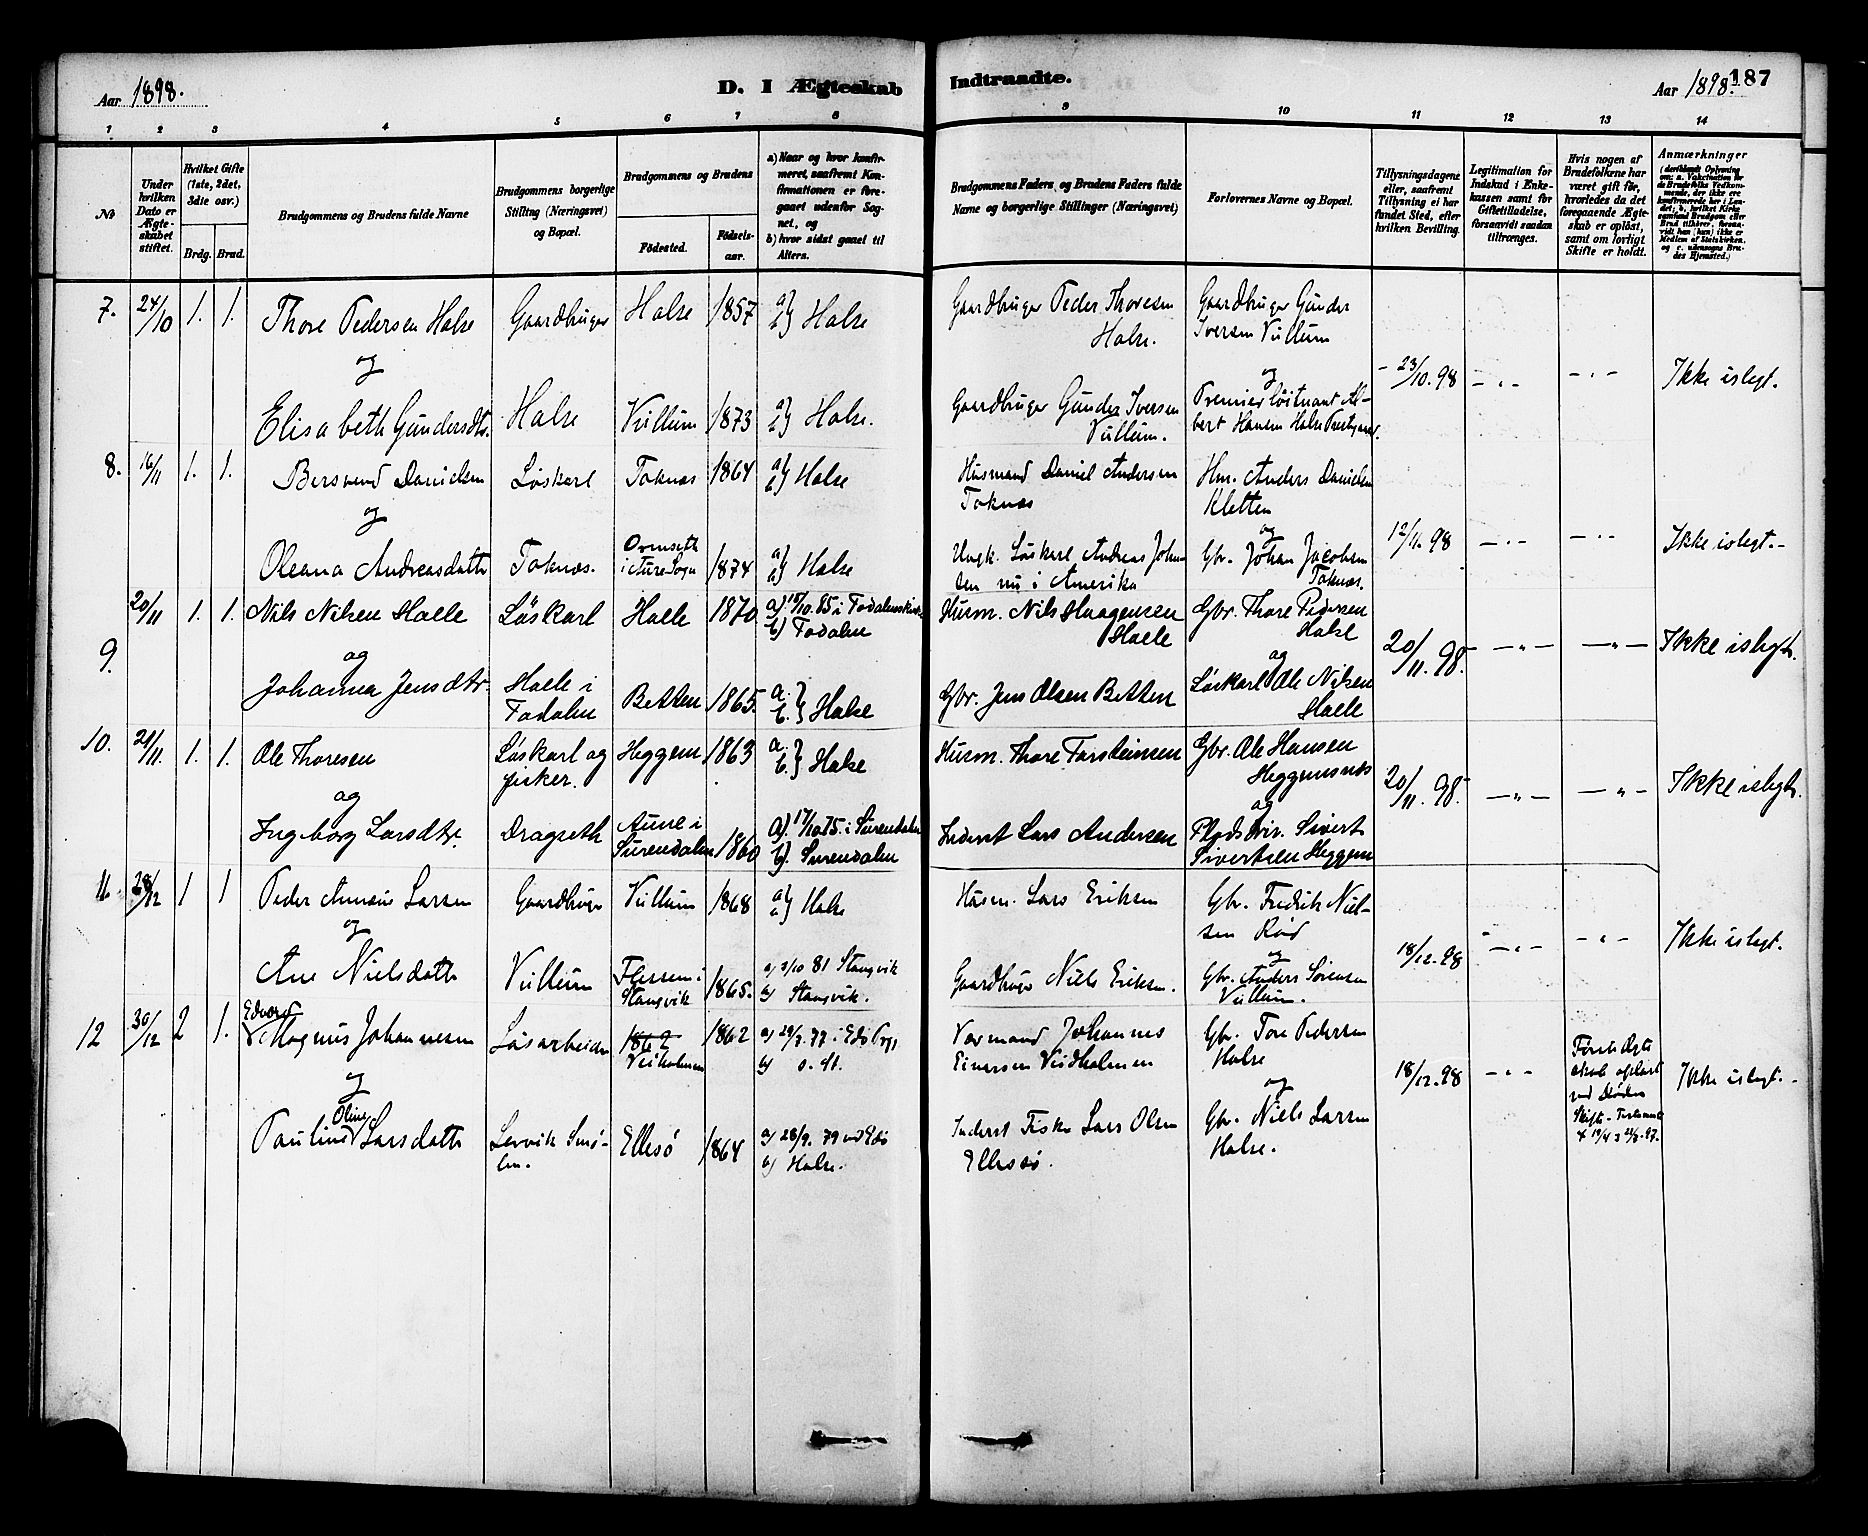 Aar 1898.
D. I Ægteskab
Indtraadte.
Aar 1898.
187
1 2 3 4 5 6 7 8 9 10 11 12 13 14
No
Under hvilken Dato er Ægteskabet stiftet.
Hvilket Gifte (1ste, 2det, 3die osv.)
Brdg. Brud.
Brudgommens og Brudens fulde Navne
Brudgommens borgerlige Stilling (Næringsvei) og Bopæl.
Brudgommens og Brudens
Födested.
Födselsaar.
a) Naar og hvor konfirmeret, saafremt Konfirmationen er foregaaet udenfor Sognet, og
b) hvor sidst gaaet til Alters.
Brudgommens Faders og Brudens Faders fulde Navne og borgerlige Stillinger (Næringsvei)
Forlovernes Navne og Bopæl.
Tillysningsdagene eller, saafremt Tillysning ei har fundet Sted, efter hvilken Bevilling.
Legitimation for Indskud i Enkekassen samt for Giftetilladelse, forsaavidt saadan tiltrænges.
Hvis nogen af Brudefolkene har været gift för, hvorledes da det foregaaende Ægteskab er oplöst, samt om lovligt Skifte er holdt.
Anmærkninger
7. 24/10 1. 1. Thore Pedersen Halse Gaardbruger Halse 1857 a) b) Halse Gaardbruger Peder Thoresen Halse. Gaardbruger Gunder Iversen Vullum
og og 23/10.98 Ikke i slegt.
Elisabeth Gundersdtr. Halse Vullum 1873 a) b) Halse. Gaardbruger Gunder Iversen Vullum. Premierløitnant Albert Hansen Halse Prestgaard.
8. 16/11 1. 1. Bersvend Danielsen Løskarl Toknæs 1864 a) b) Halse Husmand Daniel Andersen Toknæs Hm. Anders Danielsen Kletten
og og 12/11.98 Ikke i slegt.
Oleana Andreasdatter Toknæs. i Aure Sogn 1874 a) b) Halse Ungk. Løskarl Andreas Johnsen nu i Amerika Gbr. Johan Jacobsen Toknæs.
9. 20/11 1. 1. Nils Nilsen Halle Löskarl Halle 1870 a) 18/10.85 i Todalenskirke b) Todalen Husm. Nils Haagensen Halle Gbr. Thore Pedersen Halse
og og 20/11.98. Ikke i slegt.
Johanna Jensdtr. Halle i Todalen Betten 1865. a. b. } Halse Gbr. Jens Olsen Betten Löskarl Ole Nilsen Halle
10. 21/11. 1. 1. Ole Thoresen Löskarl og fisker. Heggem 1863 a. b. } Halse Husm. Thore Torsteinsen Gbr. Ole Hansen Heggemsnæs
og og 20/11.98. Ikke i slegt.
Ingeborg Larsdtr. Dragseth Aune i Surendalen 1860 a). 17/10 75. i Surendalen b). Surendalen Inderst Lars Andersen Sivert Sivertsen Heggem
11. 28/12 1 1 Peder Larsen Gaardbruger Vullum 1868 a) b) Halse Husm. Lars Eriksen Gbr. Fredrik Nielsen Röd
og og 18/12.98 Ikke i slegt.
Ane Nielsdatter Vullum i Stangvik 1865. a) 2/10 81 Stangvik b) Stangvik. Gaardbruger Niels Eriksen. Gbr. Anders Sørensen Vullum.
12 30/12 2 1. Edvard Magnus Johannesen Løsarbeider 1862 Veiholmen 1862 Johannes Einersen Veidholmen Gbr. Tore Pedersen Halse
og og 18/12.98 Ikke i slegt.
Pauline Oline Larsdatter Lervik Smølen. Ellesö 1864 a) 28/9. 79 ved Edø b) Halse. Inderst Fisker Lars Olsen Ellesö. Gbr. Niels Larsen Halse.